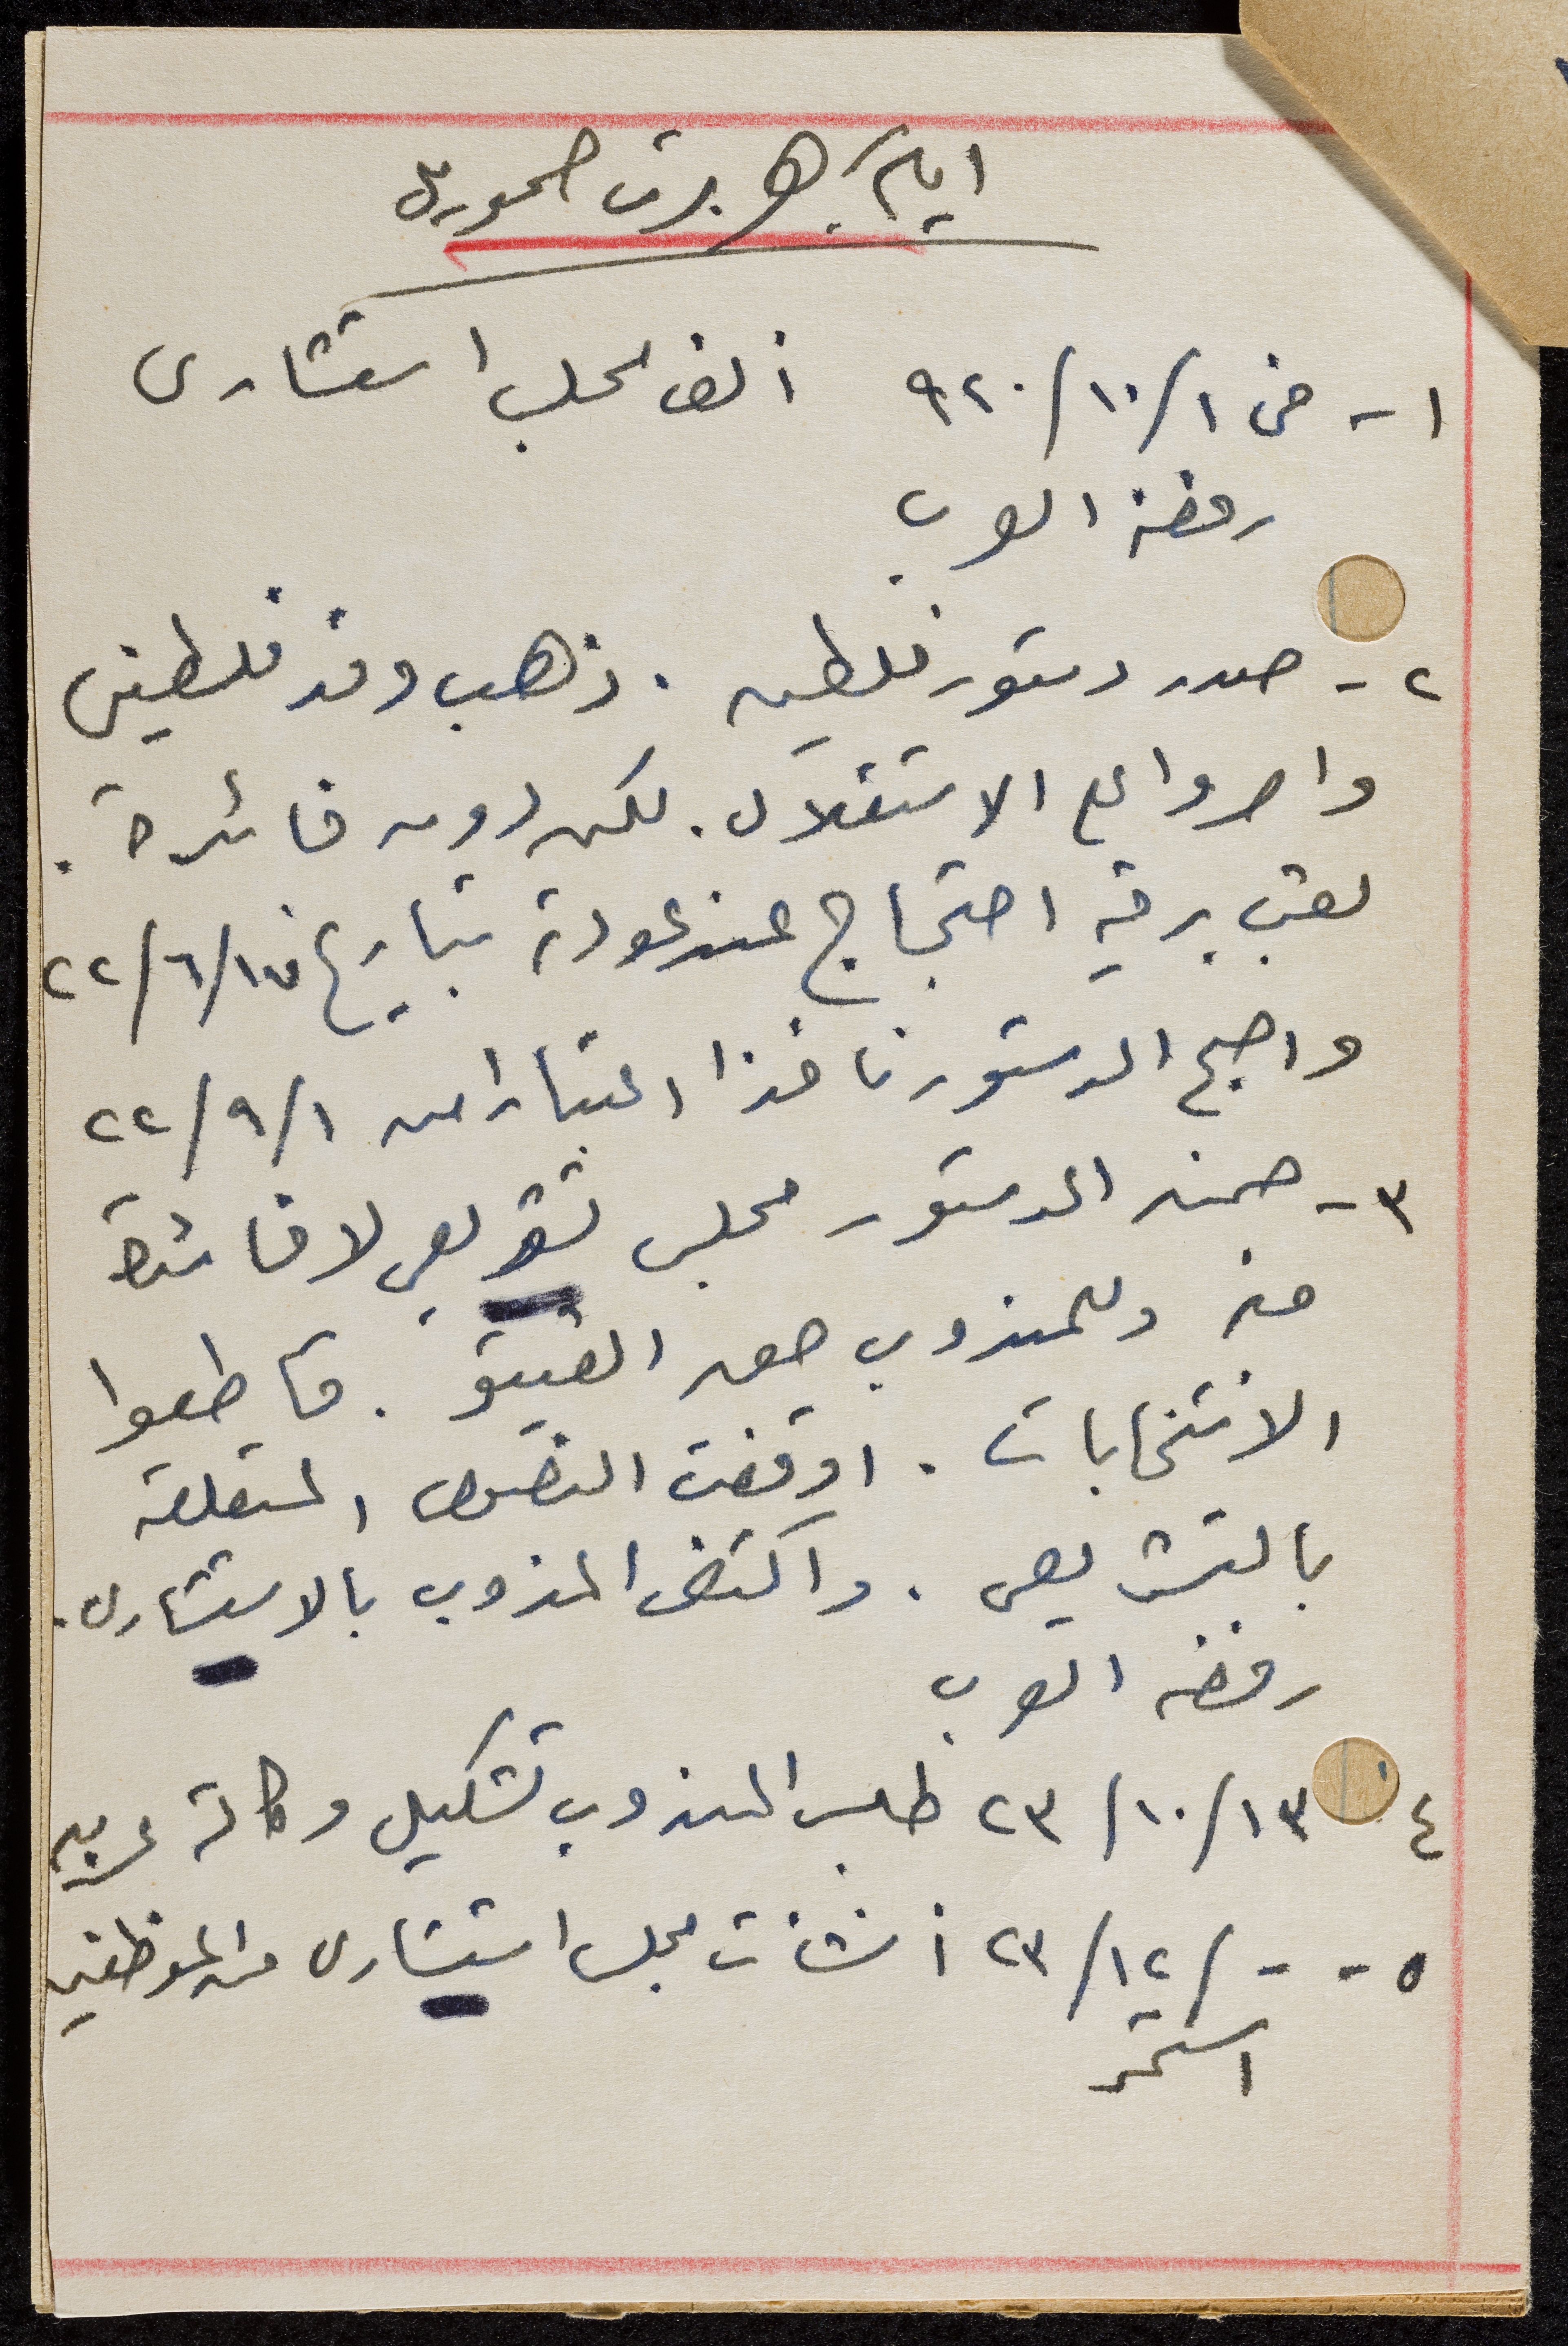 ايام هربرت صموئيل
١- في ١/١٠/٩٢٠ ألف مجلس استشارى
رفضه العرب
٢- صدر دستور فلسطين. ذهب وفد فلسطيني
واصروا على الاستقلال. لكن دون فائدة.
برقية احتجاج عند عودته بتاريخ ١٧/٦/٢٢
واصبح الدستور نافذا اعتبارا من ١/٩/٢٢
٣- ضمن الدستور مجلس تشريعي لا فائدة
منه وللمندوب حق الفيتو. قاطعوا
الانتخابات. اوقفت النصوص المتعلقة
بالتشريعي. واكتفى المندوب بالاستشارى.
رفضه العرب
٤ ١٣/١٠/٢٣ طلب المندوب تشكيل وكالة عربية
٥- -/١٢/٢٣ أنشأت مجلس استشارى من الموظفين
استمر